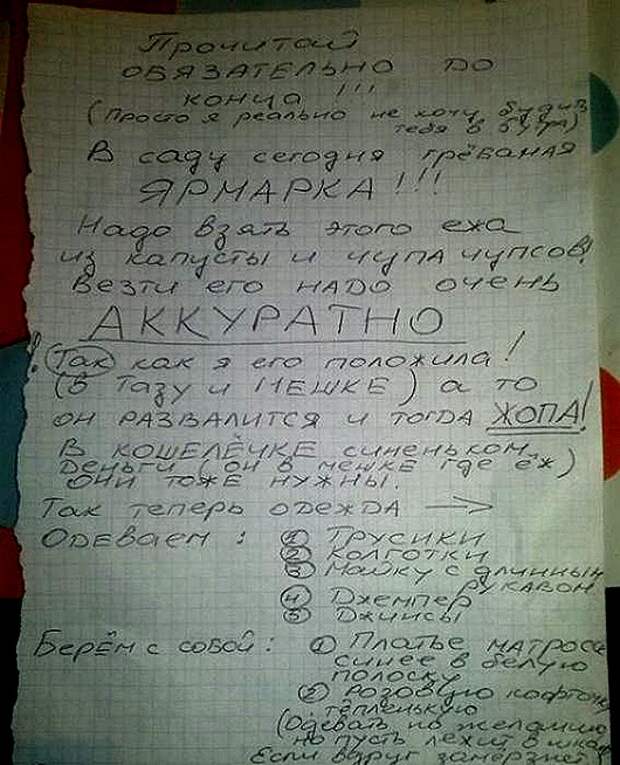 Прочитай
ОБЯЗАТЕЛЬНО ДО
КОНЦА!!!
(Просто я реально не хочу будить
тебя в 6 утра)
В саду сегодня грёбаная
ЯРМАРКА!!!
Надо взять этого ежа
из капусты и чупа чупсов!
Везти его надо очень
АККУРАТНО
! Так как я его положила!
(В ТАЗУ и МЕШКЕ) а то
он РАЗВАЛИТСЯ и тогда ЖОПА!
В КОШЕЛЁЧКЕ синеньком
Деньги (он в мешке где ёж)
Они тоже нужны.
Так теперь одежда →
Одеваем: ① Трусики
② Колготки
③ Майку с длинным
рукавом
④ Джемпер
⑤ Джинсы
Берём с собой: ① Платье
синее в белую
полоску
② Розовую
тёпленькую
(Одевать по желанию
но пусть лежит в
Если вдруг замёрзнет)